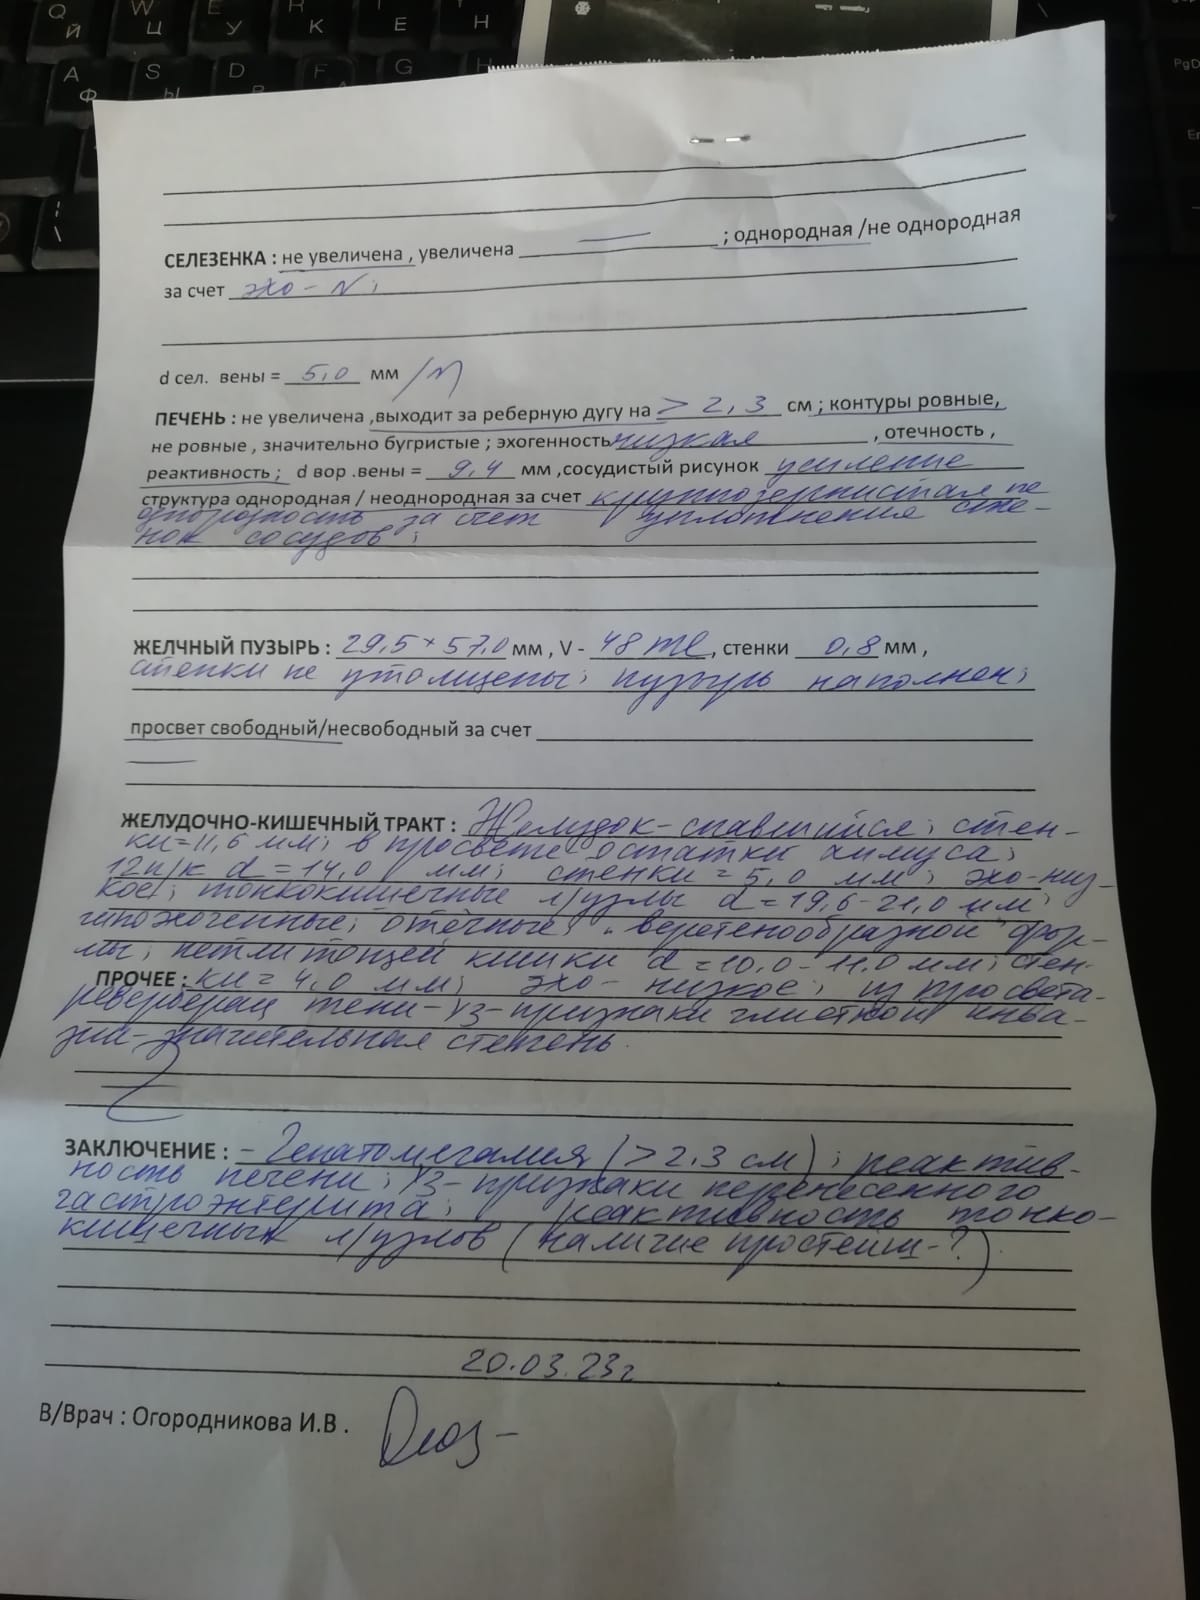 Q W E R T Y
Й Ц У К Е Н
A S D F G H
Ф Ы В А
PgD
СЕЛЕЗЕНКА : не увеличена , увеличена — ; однородная /не однородная
за счет эхо - N;
d сел. вены = 5,0 мм /N
ПЕЧЕНЬ : не увеличена ,выходит за реберную дугу на > 2,3 см ; контуры ровные,
не ровные , значительно бугристые ; эхогенность низкая , отечность ,
реактивность ; d вор .вены = 9,4 мм ,сосудистый рисунок усиление
структура однородная / неоднородная за счет крупнозернистая не
однородность за счет уплотнения сте-
нок сосудов;
ЖЕЛЧНЫЙ ПУЗЫРЬ : 29,5 × 57,0 мм , V - 48 ml , стенки 0,8 мм ,
стенки не утолщены; пузырь наполнен;
просвет свободный/несвободный за счет
—
ЖЕЛУДОЧНО-КИШЕЧНЫЙ ТРАКТ : Желудок - спавшийся; стен-
ки = 11,6 мм; в просвете остатки химуса;
12п/к d = 14,0 мм; стенки = 5,0 мм; эхо-низ-
кое; тонкокишечные л/узлы d = 19,6 - 21,0 мм;
гипоэхогенные; отечные; "веретенообразной" фор-
мы; петли тощей кишки d = 10,0 - 11,0 мм; стен-
ПРОЧЕЕ : ки = 4,0 мм; эхо - низкое; из просвета -
реверберац тени - УЗ - признаки глистной инва-
зии - значительная степень.
ЗАКЛЮЧЕНИЕ : - Гепатомегалия (> 2,3 см); реактив-
ность печени; УЗ - признаки перенесенного
гастроэнтерита; реактивность тонко-
кишечных л/узлов (наличие простейш - ?)
20.03.23г
В/Врач : Огородникова И.В .